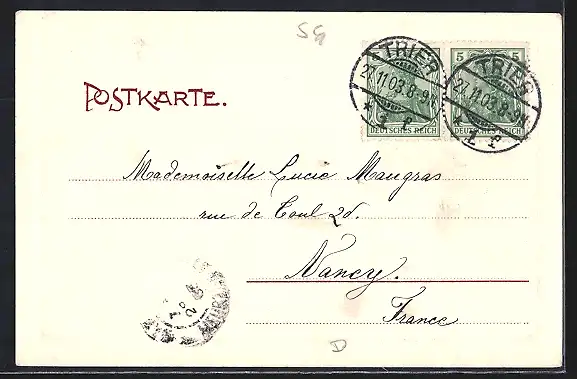 SG
5 5
TRIER TRIER
27.11.03.8-9V. 27.11.03.8-9V.
* 1 f * 1 f
DEUTSCHES REICH DEUTSCHES REICH
POSTKARTE.
Mademoiselle Lucie Maugras
rue de Toul 2d.
Nancy.
France
D